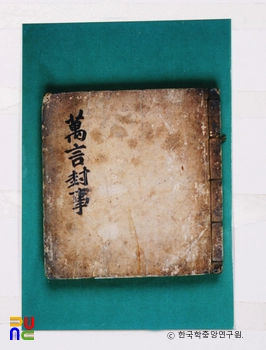 萬言封事
ⓒ 한국학중앙연구원.